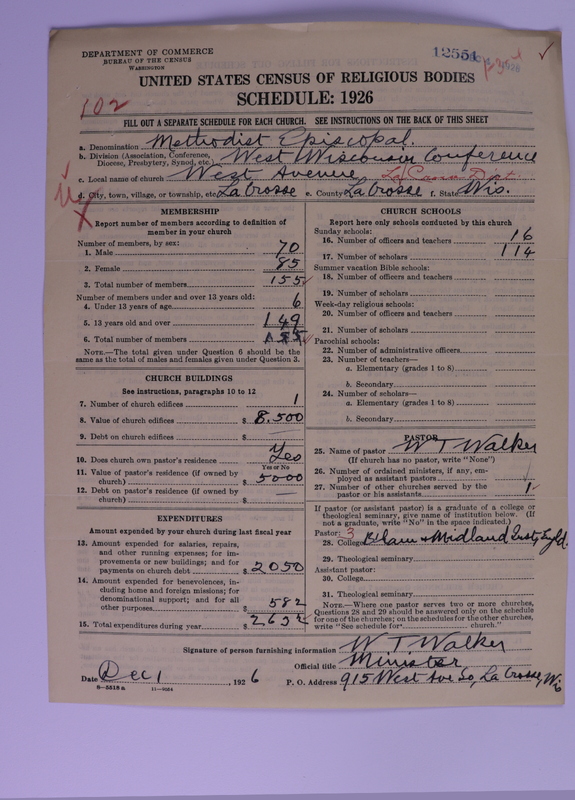 DEPARTMENT OF COMMERCE
BUREAU OF THE CENSUS
WASHINGTON
12551
UNITED STATES CENSUS OF RELIGIOUS BODIES
SCHEDULE: 1926
102
FILL OUT A SEPARATE SCHEDULE FOR EACH CHURCH. SEE INSTRUCTIONS ON THE BACK OF THIS SHEET
a. Denomination Methodist Episcopal.
b. Division (Association, Conference, Diocese, Presbytery, Synod, etc.) West Wisconsin Conference
c. Local name of church West Avenue La Crosse Dist.
d. City, town, village, or township, etc. La Crosse e. County La Crosse f. State Wis.
MEMBERSHIP
Report number of members according to definition of member in your church
Number of members, by sex:
1. Male 70
2. Female 85
3. Total number of members 155
Number of members under and over 13 years old:
4. Under 13 years of age 6
5. 13 years old and over 149
6. Total number of members 155
NOTE.—The total given under Question 6 should be the same as the total of males and females given under Question 3.
CHURCH BUILDINGS
See instructions, paragraphs 10 to 12
7. Number of church edifices 1
8. Value of church edifices $ 8,500
9. Debt on church edifices $
10. Does church own pastor's residence? Yes
Yes or No
11. Value of pastor's residence (if owned by church) $ 5000
12. Debt on pastor's residence (if owned by church) $ —
EXPENDITURES
Amount expended by your church during last fiscal year
13. Amount expended for salaries, repairs, and other running expenses; for improvements or new buildings; and for payments on church debt $ 2050
14. Amount expended for benevolences, including home and foreign missions; for denominational support; and for all other purposes $ 582
15. Total expenditures during year $ 2632
CHURCH SCHOOLS
Report here only schools conducted by this church
Sunday schools:
16. Number of officers and teachers 16
17. Number of scholars 114
Summer vacation Bible schools:
18. Number of officers and teachers
19. Number of scholars
Week-day religious schools:
20. Number of officers and teachers
21. Number of scholars
Parochial schools:
22. Number of administrative officers
23. Number of teachers—
a. Elementary (grades 1 to 8)
b. Secondary
24. Number of scholars—
a. Elementary (grades 1 to 8)
b. Secondary
PASTOR
25. Name of pastor W T Walker
(If church has no pastor, write "None")
26. Number of ordained ministers, if any, employed as assistant pastors
27. Number of other churches served by the pastor or his assistants 1
If pastor (or assistant pastor) is a graduate of a college or theological seminary, give name of institution below. (If not a graduate, write "No" in the space indicated.)
Pastor: 3
28. College Midland Inst,
29. Theological seminary
Assistant pastor:
30. College
31. Theological seminary
NOTE.—Where one pastor serves two or more churches, Questions 28 and 29 should be answered only on the schedule for one of the churches; on the schedules for the other churches, write "See schedule for church."
Signature of person furnishing information W T Walker
Official title Minister
Date Dec 1, 1926 P. O. Address 915 West Ave So, La Crosse, Wis
8—5518 a 11—9054